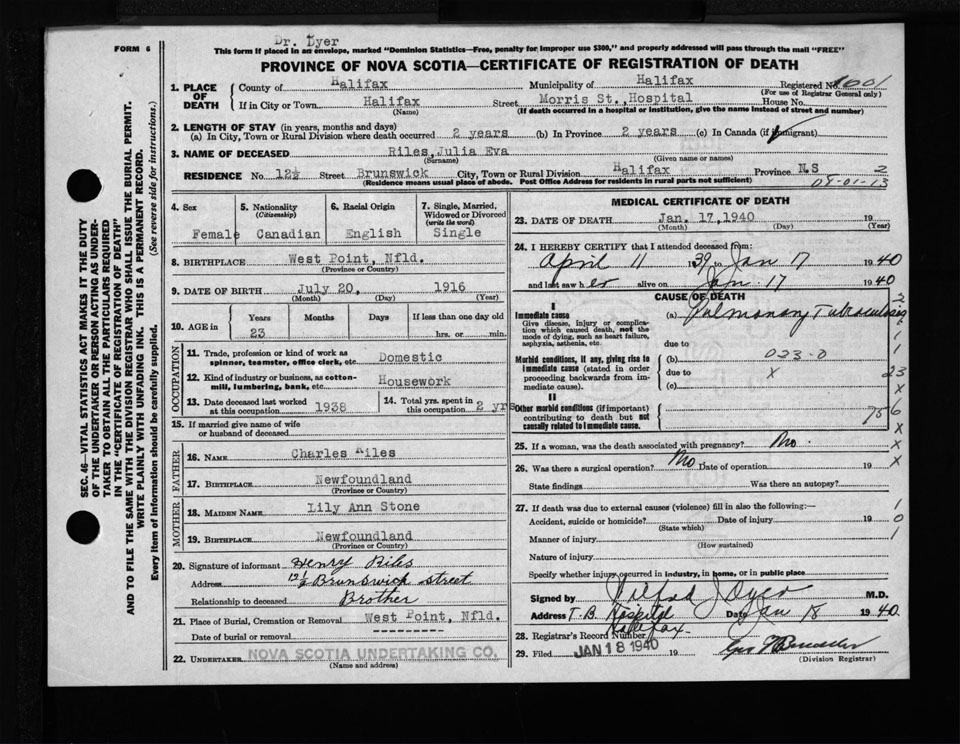 Dr. Dyer
FORM 6
This form if placed in an envelope, marked "Dominion Statistics—Free, penalty for improper use $300," and properly addressed will pass through the mail "FREE"
PROVINCE OF NOVA SCOTIA—CERTIFICATE OF REGISTRATION OF DEATH
SEC. 46—VITAL STATISTICS ACT MAKES IT THE DUTY
OF THE UNDERTAKER OR PERSON ACTING AS UNDER-
TAKER TO OBTAIN ALL THE PARTICULARS REQUIRED
IN THE "CERTIFICATE OF REGISTRATION OF DEATH"
AND TO FILE THE SAME WITH THE DIVISION REGISTRAR WHO SHALL ISSUE THE BURIAL PERMIT.
WRITE PLAINLY WITH UNFADING INK. THIS IS A PERMANENT RECORD.
Every item of Information should be carefully supplied. (See reverse side for instructions.)
1. PLACE OF DEATH
County of Halifax Municipality of Halifax Registered No. 1001
(For use of Registrar General only)
If in City or Town Halifax Street Morris St., Hospital House No.
(Name) (If death occurred in a hospital or institution, give the name instead of street and number)
2. LENGTH OF STAY (in years, months and days)
(a) In City, Town or Rural Division where death occurred 2 years (b) In Province 2 years (c) In Canada (if immigrant)
3. NAME OF DECEASED Riles, Julia Eva
(Surname) (Given name or names)
RESIDENCE No. 12½ Street Brunswick City, Town or Rural Division Halifax Province N.S 2
(Residence means usual place of abode. Post Office Address for residents in rural parts not sufficient) 08-01-13
4. Sex 5. Nationality (Citizenship) 6. Racial Origin 7. Single, Married, Widowed or Divorced (write the word)
Female Canadian English Single
8. BIRTHPLACE West Point, Nfld.
(Province or Country)
9. DATE OF BIRTH July 20, 1916
(Month) (Day) (Year)
10. AGE in Years Months Days If less than one day old
23 hrs. or min.
OCCUPATION
11. Trade, profession or kind of work as spinner, teamster, office clerk, etc. Domestic
12. Kind of industry or business, as cotton-mill, lumbering, bank, etc. Housework
13. Date deceased last worked at this occupation 1938 14. Total yrs. spent in this occupation 2 yrs
15. If married give name of wife or husband of deceased
FATHER
16. NAME Charles Riles
17. BIRTHPLACE Newfoundland
(Province or Country)
MOTHER
18. MAIDEN NAME Lily Ann Stone
19. BIRTHPLACE Newfoundland
(Province or Country)
20. Signature of informant Henry Riles
Address 12½ Brunswick street
Relationship to deceased Brother
21. Place of Burial, Cremation or Removal West Point, Nfld.
Date of burial or removal
22. UNDERTAKER NOVA SCOTIA UNDERTAKING CO.
(Name and address)
MEDICAL CERTIFICATE OF DEATH
23. DATE OF DEATH Jan. 17, 1940 19
(Month) (Day) (Year)
24. I HEREBY CERTIFY that I attended deceased from:
April 11 1939 to Jan 17 1940
and last saw her alive on Jan. 17 1940
CAUSE OF DEATH
I
Immediate cause (a) Pulmonary Tuberculosis
Give disease, injury or complication which caused death, not the mode of dying, such as heart failure, asphyxia, asthenia, etc.
due to
Morbid conditions, if any, giving rise to immediate cause (stated in order proceeding backwards from immediate cause). (b) 023-0
due to x 23
(c)
II
Other morbid conditions (if important) contributing to death but not causally related to immediate cause. 756
25. If a woman, was the death associated with pregnancy? No. x
26. Was there a surgical operation? No Date of operation 19 x
State findings Was there an autopsy?
27. If death was due to external causes (violence) fill in also the following:—
Accident, suicide or homicide? Date of injury 19
(State which)
Manner of injury
(How sustained)
Nature of injury
Specify whether injury occurred in industry, in home, or in public place
Signed by M.D.
Address T.B. Hospital Halifax. Date Jan 18 1940.
28. Registrar's Record Number
29. Filed JAN 18 1940 19
(Division Registrar)